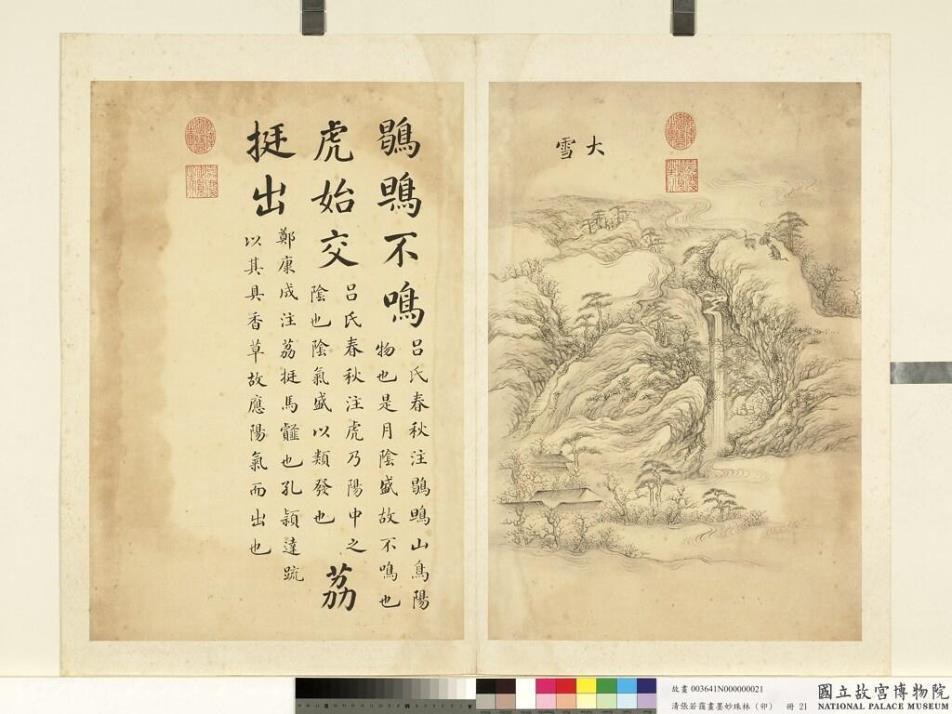 大
雪
鶡鴠不鳴 呂氏春秋注鶡鴠山鳥陽
物也是月陰盛故不鳴也
虎始交 呂氏春秋注虎乃陽中之
陰也陰氣盛以類發也 荔
挺出 鄭康成注荔挺馬䪥也孔穎達疏
以其具香草故應陽氣而出也
故畫 003641N000000021
清張若靄畫墨妙珠林(卯) 冊 21
國立故宮博物院
NATIONAL PALACE MUSEUM